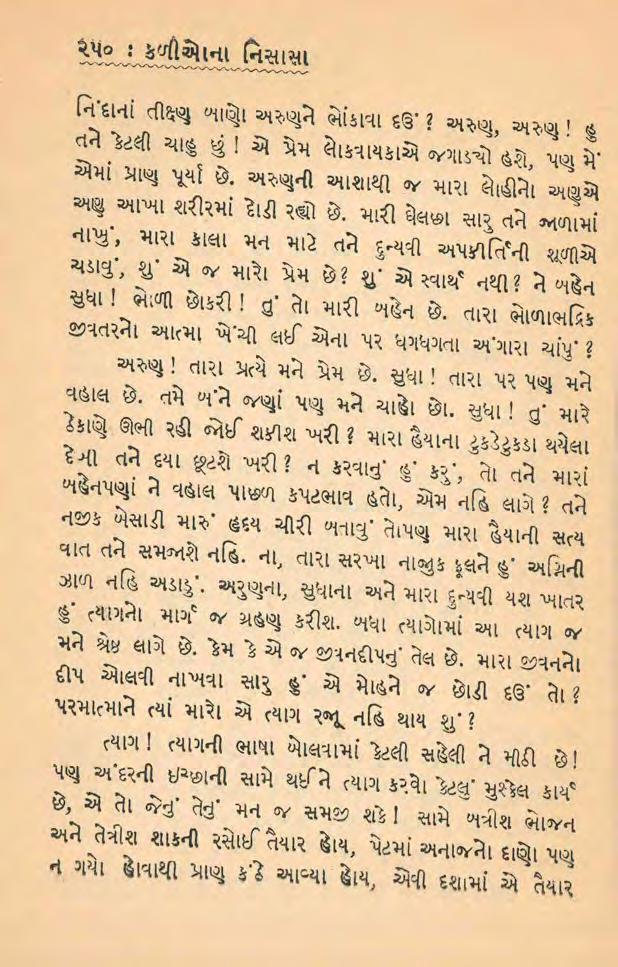 ૨૫૦ : કળીઓના નિસાસા
નિંદાનાં તીક્ષ્ણ બાણો અરુણને ભોંકાવા દઉં? અરુણ, અરુણ! હું
તને કેટલી ચાહું છું! એ પ્રેમ લોકવાયકાએ જગાડ્યો હશે, પણ મેં
એમાં પ્રાણ પૂર્યા છે. અરુણની આશાથી જ મારા લોહીનો અણુએ
અણુ આખા શરીરમાં દોડી રહ્યો છે. મારી ઘેલછા સારુ તને જાળામાં
નાખું, મારા કાલા મન માટે તને દુન્યવી અપકીર્તિની શૂળીએ
ચડાવું, શું એ જ મારો પ્રેમ છે? શું એ સ્વાર્થ નથી? ને બહેન
સુધા! ભોળી છોકરી! તું તો મારી બહેન છે. તારા ભોળાભદ્રિક
જીવતરનો આત્મા ખેંચી લઈ એના પર ધગધગતા અંગારા ચાંપું?
અરુણ! તારા પ્રત્યે મને પ્રેમ છે. સુધા! તારા પર પણ મને
વહાલ છે. તમે બંને જણાં પણ મને ચાહો છો. સુધા! તું મારે
ઠેકાણે ઊભી રહી જોઈ શકીશ ખરી? મારા હૈયાના ટુકડેટુકડા થયેલા
દેખી તને દયા છૂટશે ખરી? ન કરવાનું હું કરું, તો તને મારાં
બહેનપણાં ને વહાલ પાછળ કપટભાવ હતો, એમ નહિ લાગે? તને
નજીક બેસાડી મારું હૃદય ચીરી બતાવું તોપણ મારા હૈયાની સત્ય
વાત તને સમજાશે નહિ. ના, તારા સરખા નાજુક ફૂલને હું અગ્નિની
ઝાળ નહિ અડાડું. અરુણના, સુધાના અને મારા દુન્યવી યશ ખાતર
હું ત્યાગનો માર્ગ જ ગ્રહણ કરીશ. બધા ત્યાગોમાં આ ત્યાગ જ
મને શ્રેષ્ઠ લાગે છે. કેમ કે એ જ જીવનદીપનું તેલ છે. મારા જીવનનો
દીપ ઓલવી નાખવા સારુ હું એ મોહને જ છોડી દઉં તો?
પરમાત્માને ત્યાં મારો એ ત્યાગ રજૂ નહિ થાય શું?
ત્યાગ! ત્યાગની ભાષા બોલવામાં કેટલી સહેલી ને મીઠી છે!
પણ અંદરની ઇચ્છાની સામે થઈને ત્યાગ કરવો કેટલું મુશ્કેલ કાર્ય
છે, એ તો જેનું તેનું મન જ સમજી શકે! સામે બત્રીશ ભોજન
અને તેત્રીશ શાકની રસોઈ તૈયાર હોય, પેટમાં અનાજનો દાણો પણ
ન ગયો હોવાથી પ્રાણ કંઠે આવ્યા હોય, એવી દશામાં એ તૈયાર